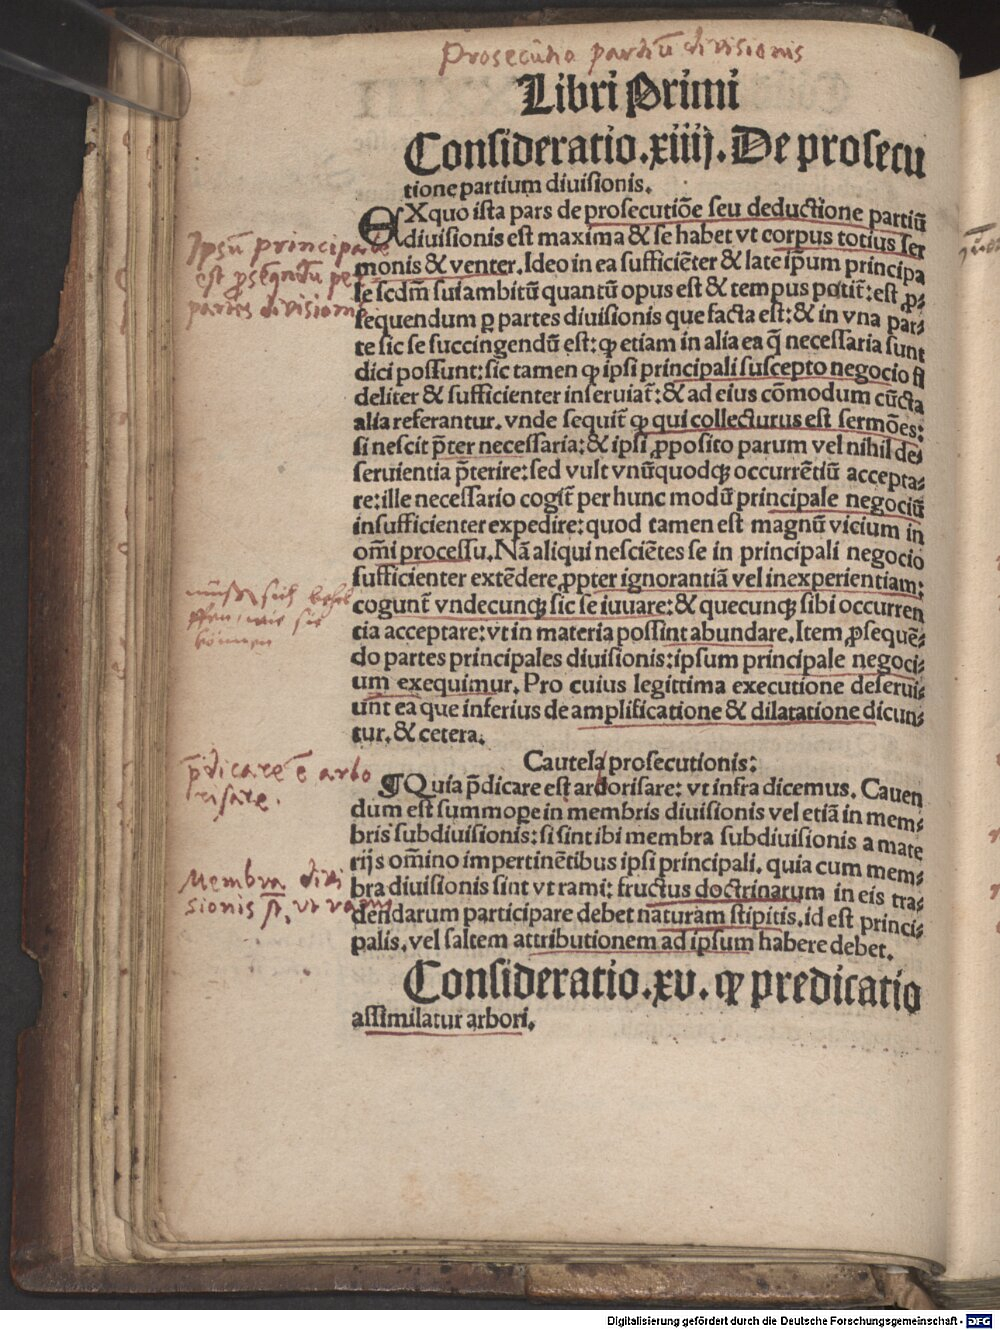 Prosecutio partiū divisionis
Libri Primi
Consideratio.xiiij. De prosecu
tione partium diuisionis.
EXquo ista pars de prosecutiōe seu deductione partiū
diuisionis est maxima & se habet vt corpus totius ser
monis & venter. Ideo in ea sufficiēter & late ip̄um principa
le scdm̄ sui ambitū quantū opus est & tempus patit̄: est ꝓ⸗
sequendum ꝑ partes diuisionis que facta est: & in vna par⸗
te sic se succingendū est: ꝙ etiam in alia ea q̄ necessaria sunt
dici possunt: sic tamen ꝙ ipsi principali suscepto negocio fi
deliter & sufficienter inseruiat̄: & ad eius cōmodum cūcta
alia referantur. vnde sequit̄ ꝙ qui collecturus est sermōes:
si nescit p̄ter necessaria: & ipsi ꝓposito parum vel nihil de⸗
seruientia p̄terire: sed vult vnūquodqꝫ occurrētiū accepta⸗
re: ille necessario cogit̄ per hunc modū principale negociū
insufficienter expedire: quod tamen est magnū vicium in
om̄i processu. Nā aliqui nesciētes se in principali negocio
sufficienter extēdere ꝓpter ignorantiā vel inexperientiam:
cogunt̄ vndecunqꝫ sic se iuuare: & quecunqꝫ sibi occurren
cia acceptare: vt in materia possint abundare. Item ꝓsequē⸗
do partes principales diuisionis: ipsum principale negoci⸗
um exequimur. Pro cuius legittima executione deserui⸗
unt ea que inferius de amplificatione & dilatatione dicun⸗
tur. & cetera.
Cautela prosecutionis:
¶ Quia p̄dicare est arborisare: vt infra dicemus. Cauen
dum est summoꝑe in membris diuisionis vel etiā in mem⸗
bris subdiuisionis: si sint ibi membra subdiuisionis a mate
rijs om̄ino impertinētibus ipsi principali. quia cum mem⸗
bra diuisionis sint vt rami: fructus doctrinarum in eis tra⸗
dendarum participare debet naturam stipitis. id est princi⸗
palis. vel saltem attributionem ad ipsum habere debet.
Consideratio.xv. ꝙ predicatio
assimilatur arbori.
Ipsū principale
est ꝓseqndū per
partes divisionis
müssen sich behel
ffen, wie sie
können
p̄dicare ē arbo
risare.
Membra divi
sionis st̄, vt rami
Digitalisierung gefördert durch die Deutsche Forschungsgemeinschaft - DFG